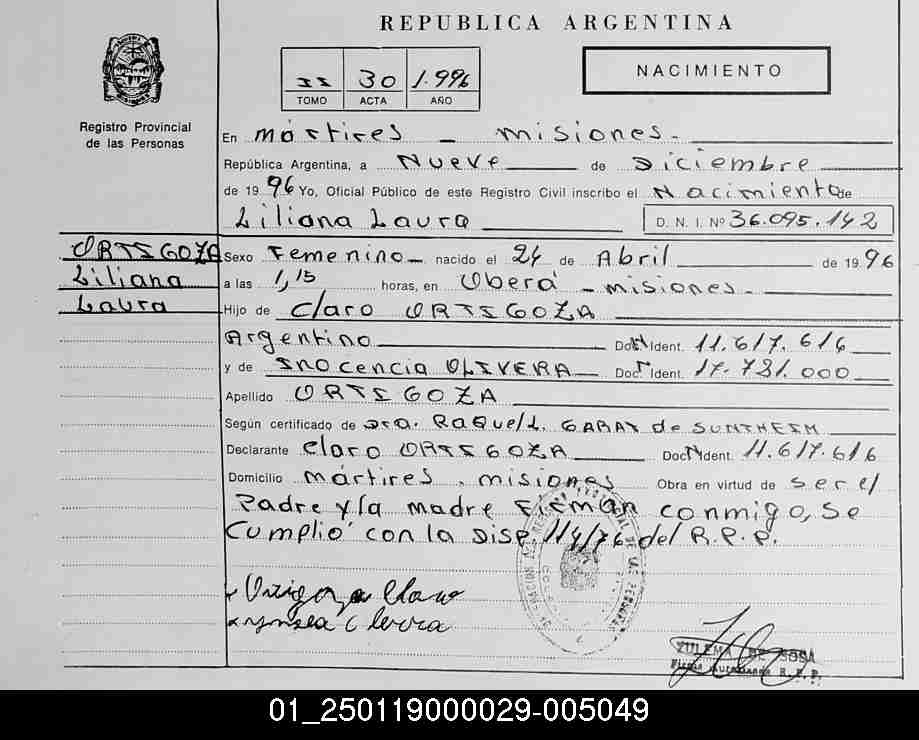 REPUBLICA ARGENTINA
II 30 1.996
TOMO ACTA AÑO
NACIMIENTO
Registro Provincial
de las Personas
En mártires - misiones -
República Argentina, a Nueve de Diciembre
de 19 96 Yo, Oficial Público de este Registro Civil inscribo el Nacimiento de
Liliana Laura D. N. I. Nº 36.095.142
ORTIGOZA
Liliana
Laura
Sexo Femenino nacido el 24 de Abril de 19 96
a las 1,15 horas, en Oberá - misiones -
Hijo de Claro ORTIGOZA
Argentino Doc. Ident. 11.617.616
y de INOcencia OLIVERA Doc. Ident. 17.731.000
Apellido ORTIGOZA
Según certificado de Dra. RAQuel L. GARAY de SUNTHEIM
Declarante Claro ORTIGOZA Doc. Ident. 11.617.616
Domicilio mártires . misiones Obra en virtud de ser el
Padre y la madre Firman conmigo, se
Cumplió con la Disp. 114/76 del R.P.P.
Ortigoza Claro
ZULEMA DE SOSA
Firma Autorizada R.P.P.
01_250119000029-005049